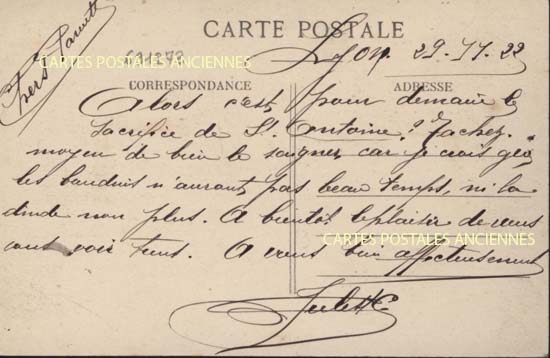 CARTE POSTALE
Très Pressé
691273
Lyon 29-11-22
CARTES POSTALES ANCIENNES
CORRESPONDANCE
ADRESSE
Alors c'est pour demain le
Sacrifice de St Antoine? Tachez
moyen de bien le soigner car je crois que
les bauduis n'auront pas beau temps, ni la
dinde non plus. A bientôt le plaisir de vous
CARTES POSTALES ANCIENNES
voir tous. A vous bien affectueusement
Juliette